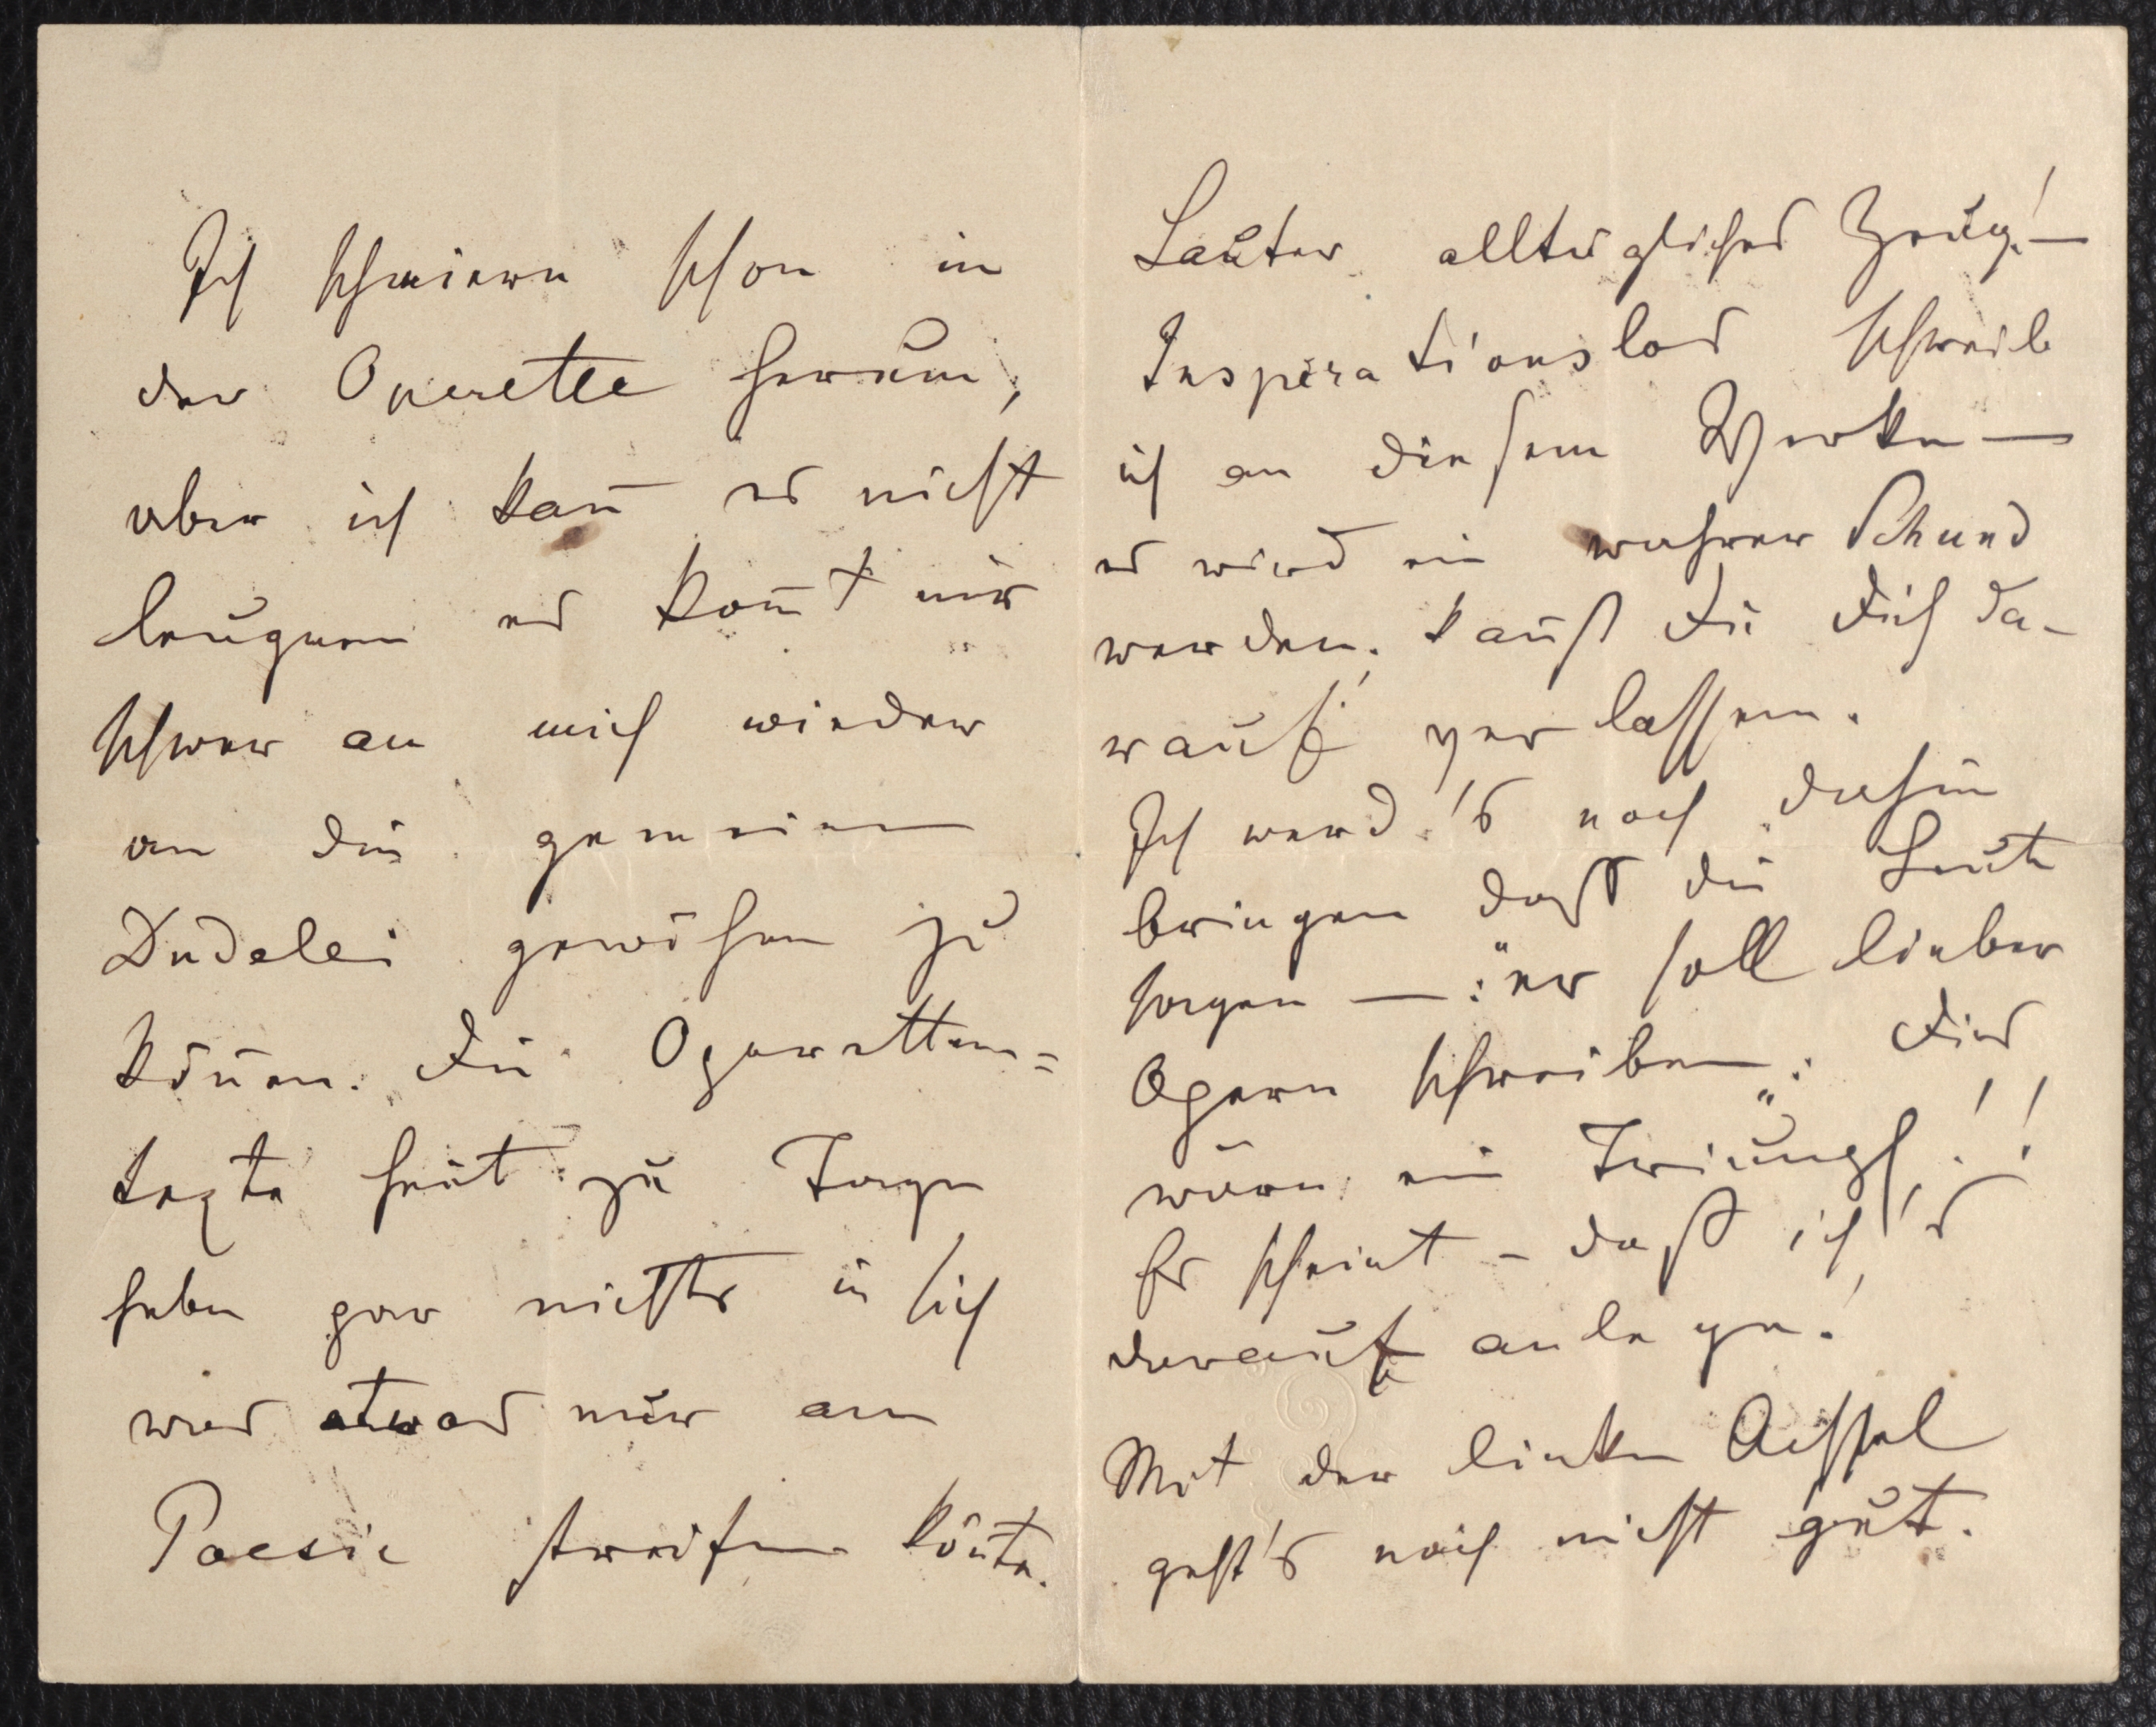 Ich schmiere schon in
der Operette herum,
aber ich kan̄ es nicht
leugnen es kom̄t mir
schwer an mich wieder
an die gemeine
Dudelei gewöhnen zu
kön̄en. Die Operetten=
texte heut zu Tage
haben gar nichts in sich
was etwas nur an
Poesie streifen kön̄te.
Lauter alltägliches Zeug! —
Insperationslos schreib
ich an diesem Werke —
es wird ein wahrer Schund
werden, kan̄st Du Dich da-
rauf verlassen.
Ich werd's noch dahin
bringen daß die Leute
sagen —: "er soll lieber
Opern schreiben„. Dies
wäre ein Triumpf!!
Es scheint – daß ich's
darauf anlege!
Mit der linken Achsel
geht's noch nicht gut.